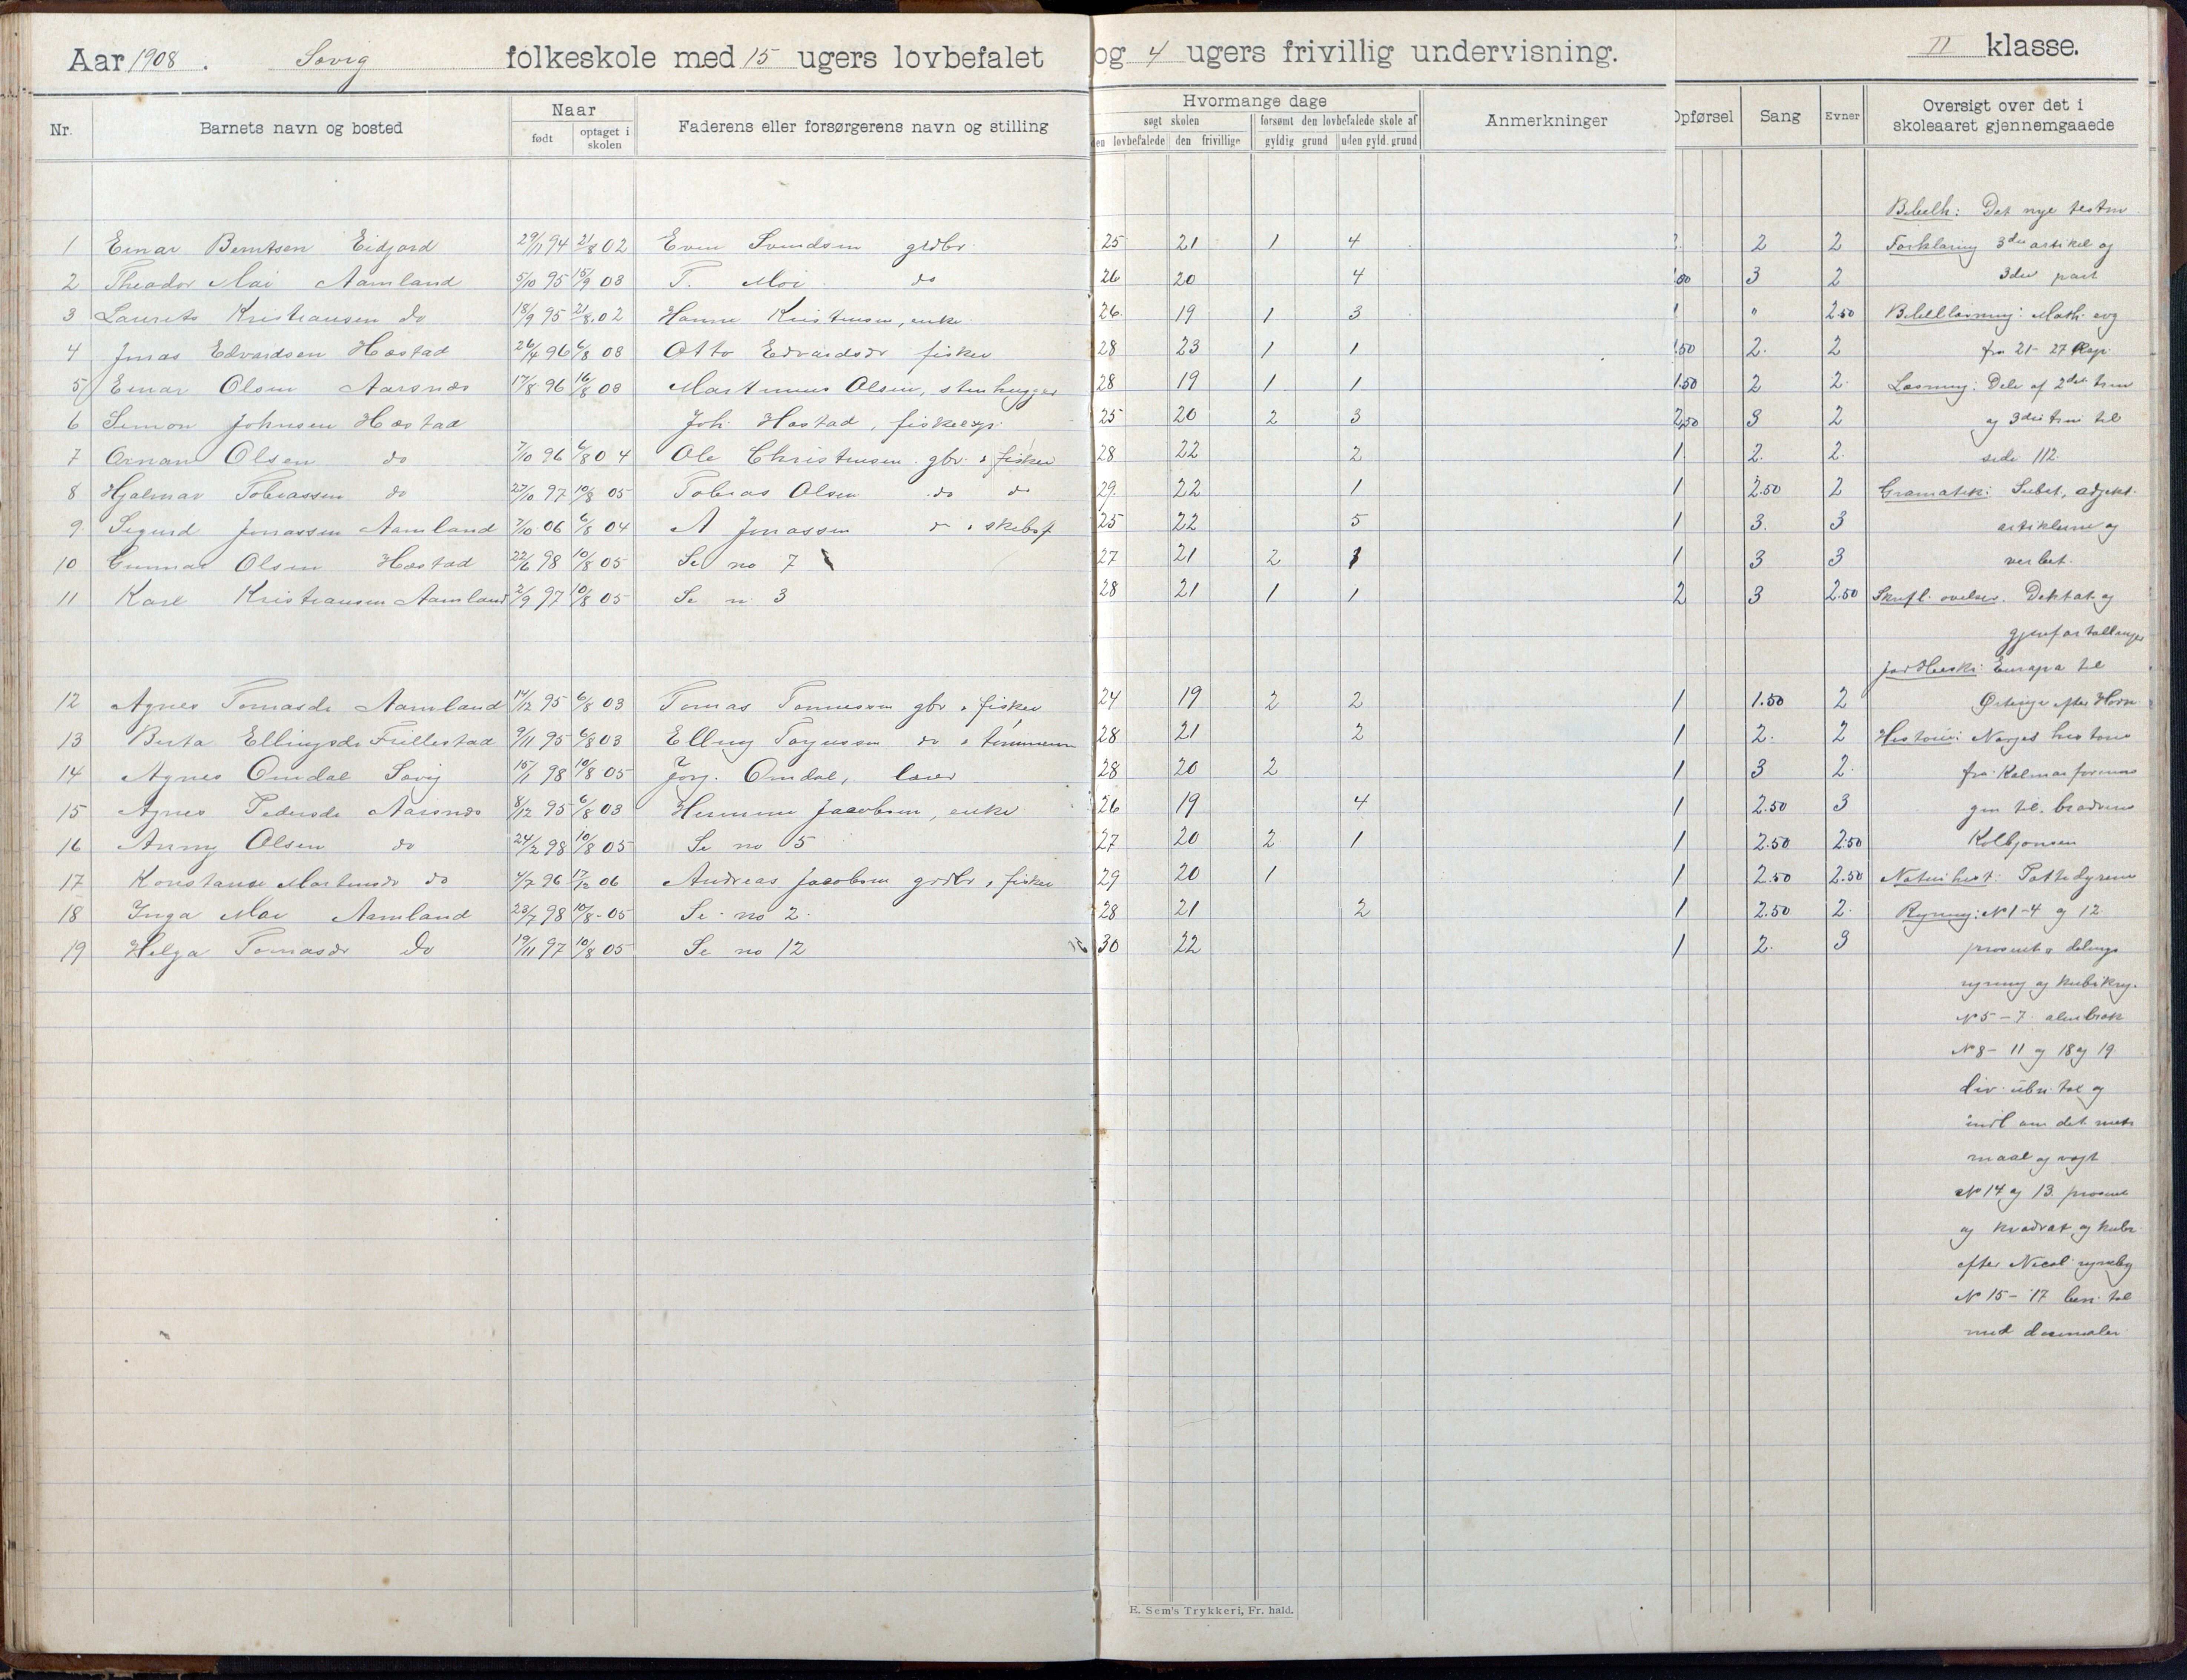 Aar 1908. Søvig folkeskole med 15 ugers lovbefalet og 4 ugers frivillig undervisning. II klasse.
Nr. Barnets navn og bosted Naar født optaget i skolen Faderens eller forsørgerens navn og stilling Hvormange dage søgt skolen den lovbefalede den frivillige forsømt den lovbefalede skole af gyldig grund uden gyld. grund Anmerkninger Opførsel Sang Evner Oversigt over det i skoleaaret gjennemgaaede
Bibelh: Det nye testm
1 Einar Berntsen Eidjord 29/11 94 21/8 02 Even Svendsen grdbr. 25 21 1 4 2 2 Forklaring 3die artikel og
2 Theodor Moi Aamland 5/10 95 15/9 03 T. Moi do 26 20 4 3 2 3die part
3 Laurits Kristiansen do 18/9 95 21/8 02 Hanne Kristensen, enke 26 19 1 3 " 2.50 Bibellæsning: Math. evg
4 Jonas Edvardsen Hæstad 26/4 96 6/8 03 Otto Edvardsdr fisker 28 23 1 1 1.50 2. 2 fra 21-27 Kap.
5 Einar Olsen Aarsnes 17/8 96 16/8 03 Martinius Olsen, stenhugger 28 19 1 1 1.50 2 2 Læsning: Dele af 2det trin
6 Simon Johnsen Hæstad Joh. Hæstad, fiskeexp. 25 20 2 3 2,50 3 2 og 3die trin til
7 Ornan Olsen do 7/10 96 6/8 04 Ole Christensen gbr. & fisker 28 22 2 1 2. 2. side 112.
8 Hjalmar Tobiassen do 27/10 97 10/8 05 Tobias Olsen do do 29 22 1 1 2.50 2 Gramatik: Subst, adjekt.
9 Sigurd Jonassen Aamland 7/10 06 6/8 04 A Jonassen do & skibsf. 25 22 5 1 3. 3 artiklerne og
10 Gunnar Olsen Hæstad 22/6 98 10/8 05 Se no 7 27 21 2 1 1 3 3 verbet.
11 Karl Kristiansen Aamland 2/9 97 10/8 05 Se n. 3 28 21 1 1 2 3 2.50 Skriftl. øvelser. Diktat og
gjenfortællinger
Jordbeskr: Europa til
12 Agnes Tomasdr Aamland 14/12 95 6/8 03 Tomas Tønnesen gbr & fisker 24 19 2 2 1 1.50 2 efter Horn
13 Berta Ellingsdr Fullestad 9/11 95 6/8 03 Elling Torjussen do & tømmerm 28 21 2 1 2. 2 Historie: Norges historie
14 Agnes Omdal Søvig 15/1 98 10/8 05 Jørg. Omdal, lærer 28 20 2 1 3 2. fra Kalmarforenin
15 Agnes Pedersdr Aarsnes 8/12 95 6/8 03 Jacobsen, enke 26 19 4 1 2.50 3 gen til brødrene
16 Anny Olsen do 24/2 98 10/8 05 Se no 5 27 20 2 1 1 2.50 2.50 Kolbjørnsen
17 Konstanse Martinsdr do 4/7 96 17/12 06 Andreas Jacobsen grdbr & fisker 29 20 1 1 2.50 2.50 Naturhist: Pattedyrene
18 Inga Moi Aamland 23/7 98 10/8 05 Se no 2. 28 21 2 1 2.50 2. Regning: No 1-4 og 12
19 Helga Tomasdr do 19/11 97 10/8 05 Se no 12 30 22 1 2. 3 prosent & delings
regning og kubikreg.
No 5-7 alm brøk
No 8-11 og 18 og 19
div. ubn tal og
indl om det metr
maal og vegt
No 14 og 13. prosent
og kvadrat og kubr
efter Nicol. regnebog
No 15-17 ben. tal
med desimaler
E. Sem's Trykkeri, Fr. hald.